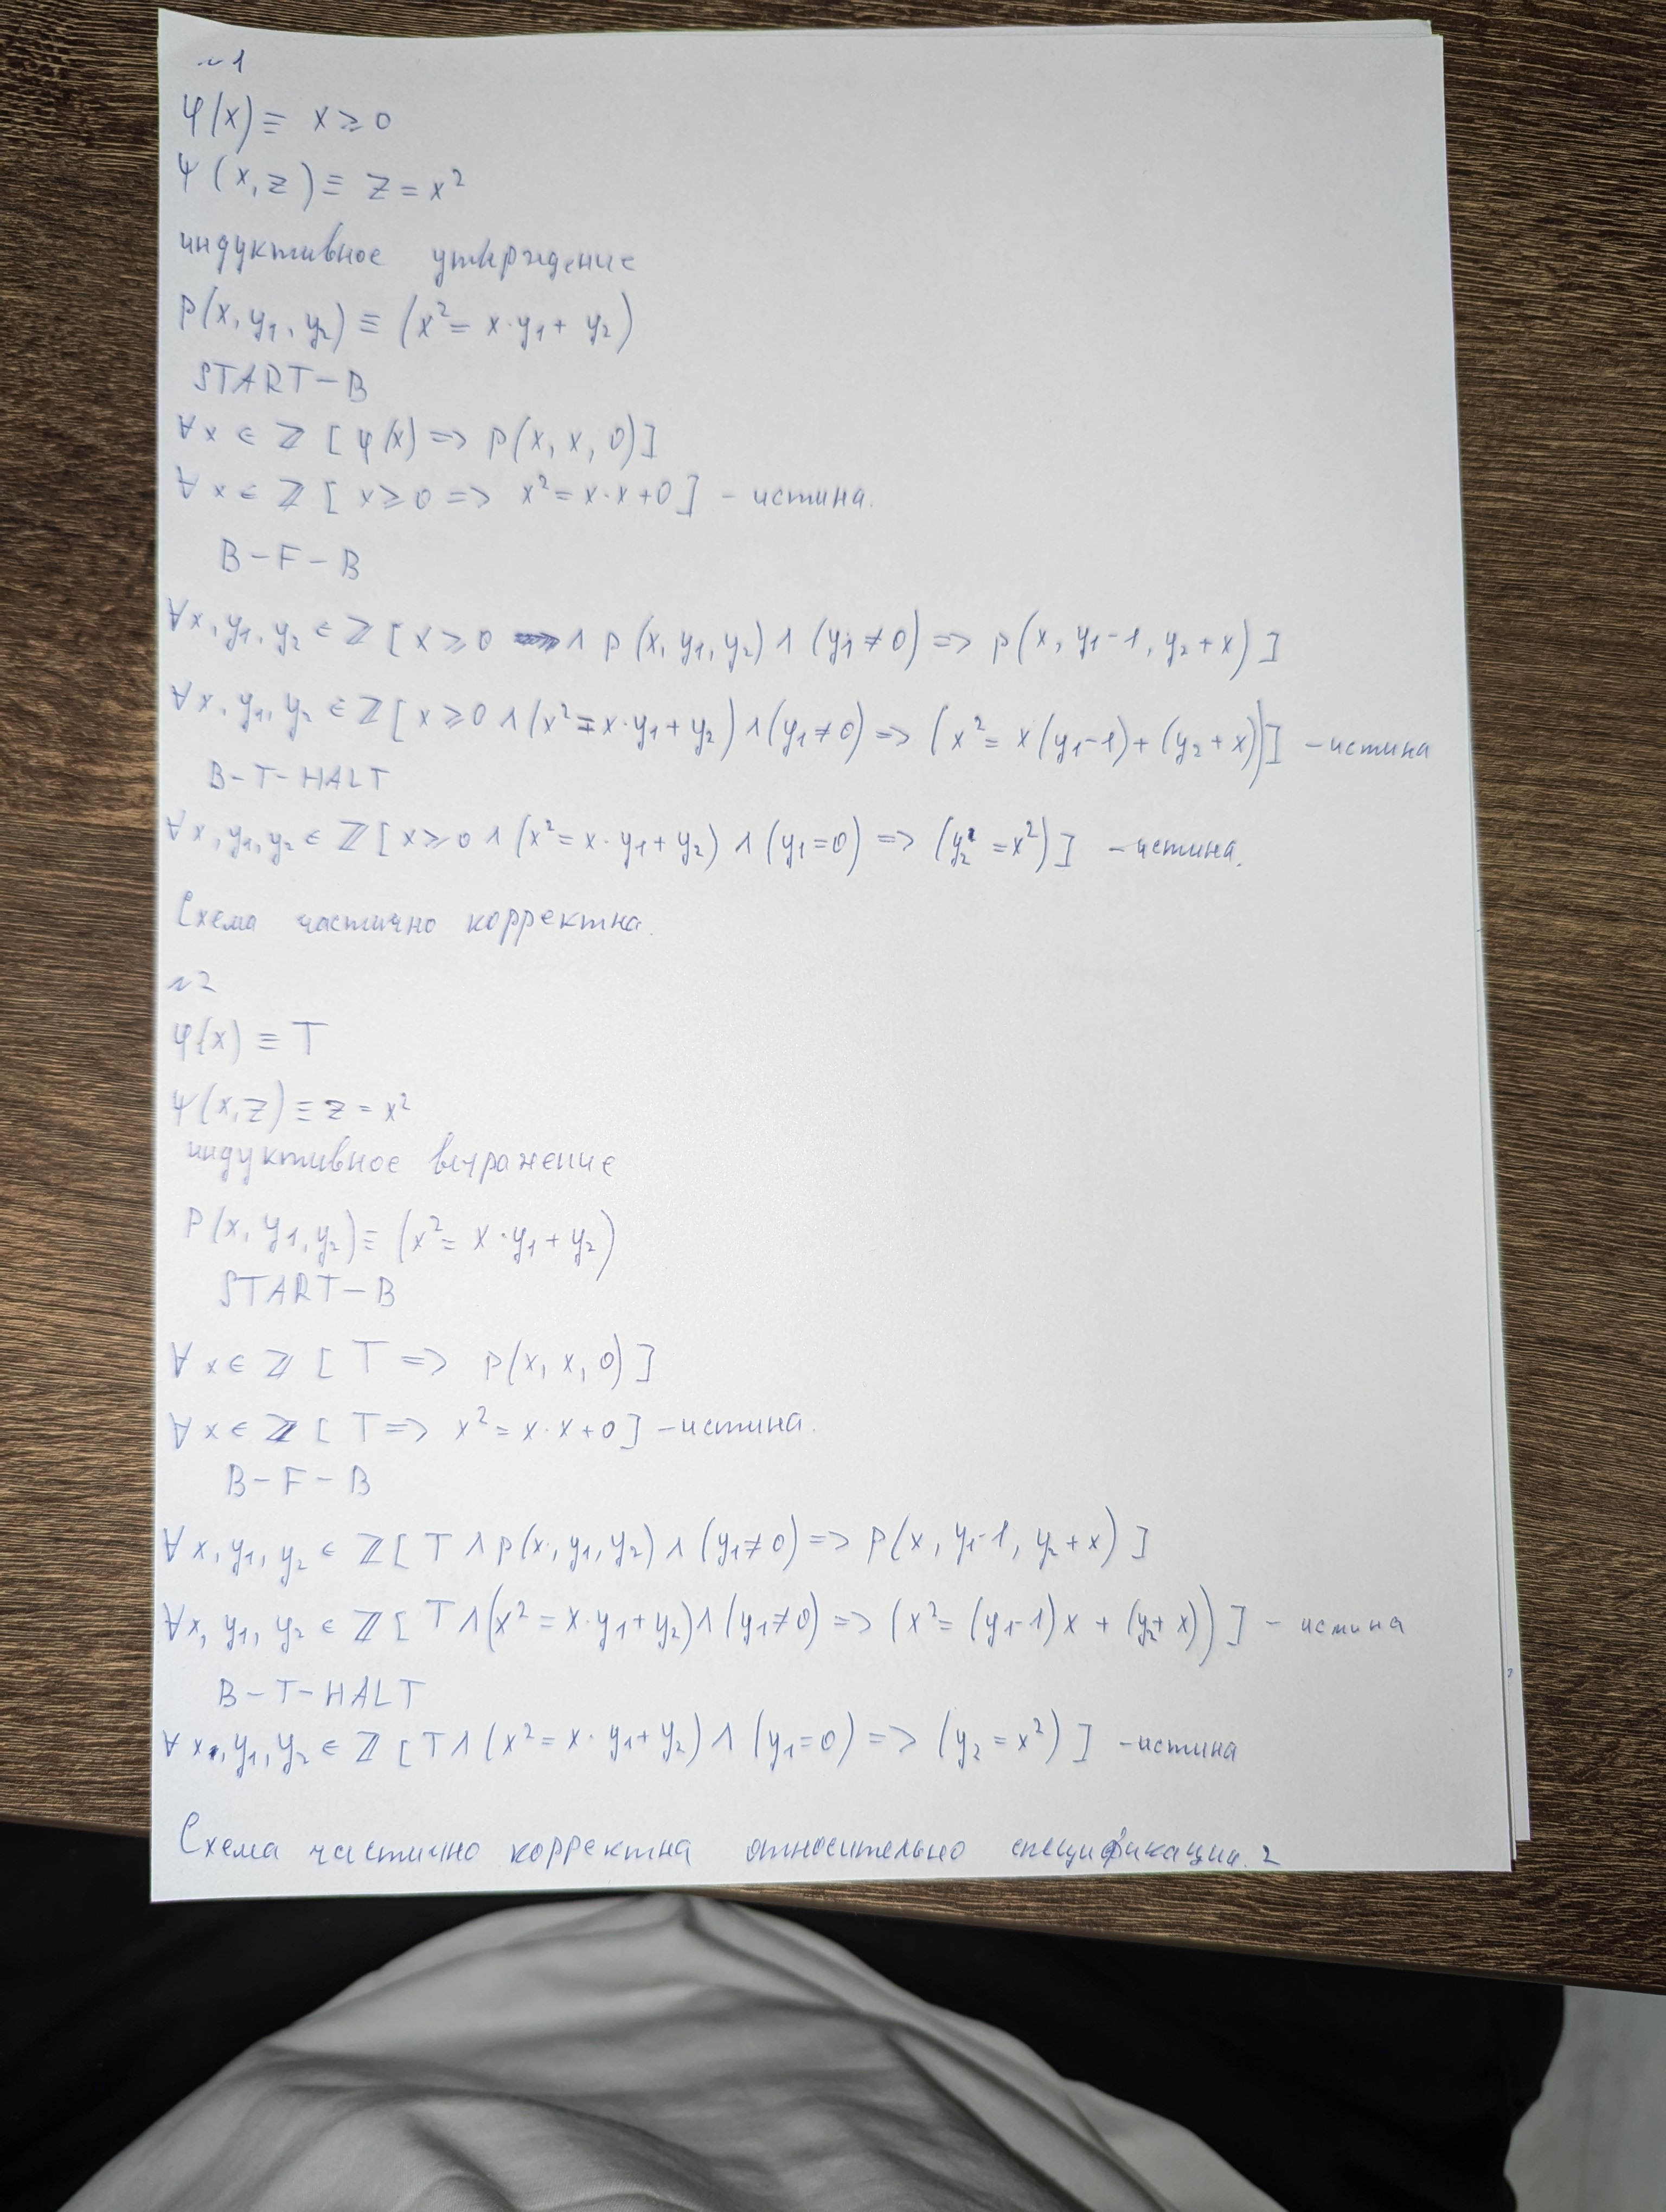 №1
φ(x) ≡ x ≥ 0
Ψ(x, z) ≡ z = x²
индуктивное утверждение
p(x, y₁, y₂) ≡ (x² = x·y₁ + y₂)
START – B
∀x ∈ ℤ [φ(x) => p(x, x, 0)]
∀x ∈ ℤ [x ≥ 0 => x² = x·x + 0] – истина.
B – F – B
∀x, y₁, y₂ ∈ ℤ [x ≥ 0 ∧ p(x, y₁, y₂) ∧ (y₁ ≠ 0) => p(x, y₁-1, y₂ + x)]
∀x, y₁, y₂ ∈ ℤ [x ≥ 0 ∧ (x² = x·y₁ + y₂) ∧ (y₁ ≠ 0) => (x² = x(y₁-1) + (y₂ + x))] – истина
B – T – HALT
∀x, y₁, y₂ ∈ ℤ [x ≥ 0 ∧ (x² = x·y₁ + y₂) ∧ (y₁ = 0) => (y₂ = x²)] – истина.
Схема частично корректна.
№2
φ(x) ≡ T
Ψ(x, z) ≡ z = x²
индуктивное выражение
P(x, y₁, y₂) ≡ (x² = x·y₁ + y₂)
START – B
∀x ∈ ℤ [T => p(x, x, 0)]
∀x ∈ ℤ [T => x² = x·x + 0] – истина.
B – F – B
∀x, y₁, y₂ ∈ ℤ [T ∧ p(x, y₁, y₂) ∧ (y₁ ≠ 0) => p(x, y₁-1, y₂ + x)]
∀x, y₁, y₂ ∈ ℤ [T ∧ (x² = x·y₁ + y₂) ∧ (y₁ ≠ 0) => (x² = (y₁-1)x + (y₂ + x))] – истина
B – T – HALT
∀x, y₁, y₂ ∈ ℤ [T ∧ (x² = x·y₁ + y₂) ∧ (y₁ = 0) => (y₂ = x²)] – истина
Схема частично корректна относительно спецификации 2